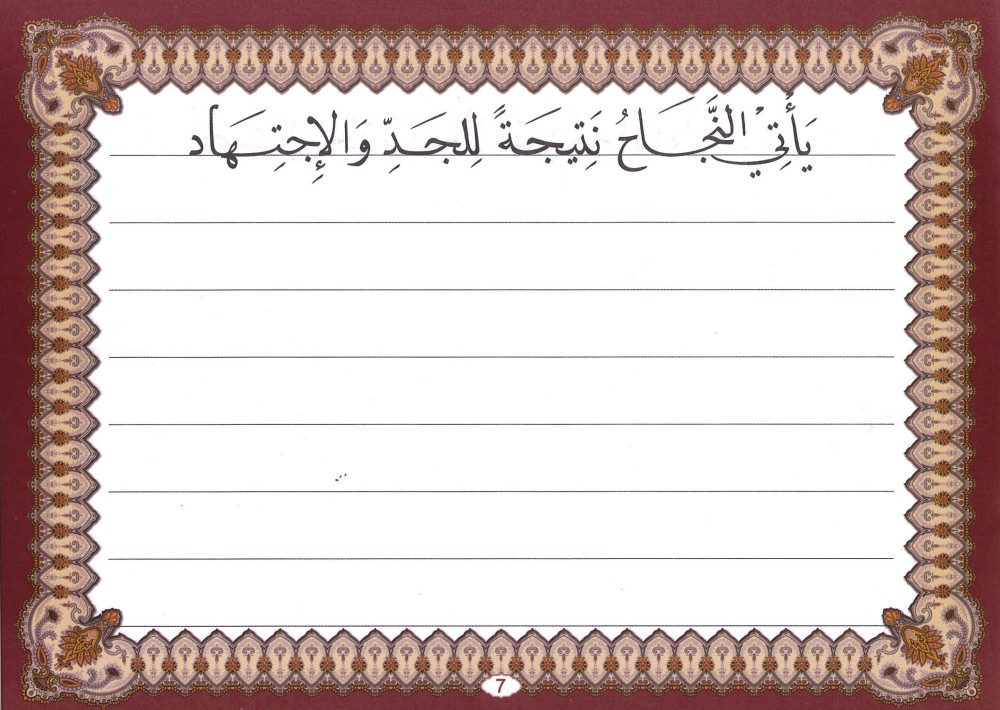 يَأْتِيْ النَّجَاحُ نَتِيجَةً لِلجَدِّ وَالإِجتِهَاد
7